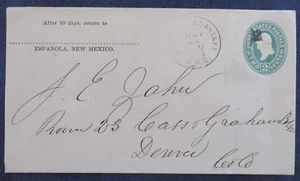 After 10 days, return to
ESPANOLA, NEW MEXICO.
J. E. Zahn
Room 23 Cass & Graham Blk
Denver
Colo